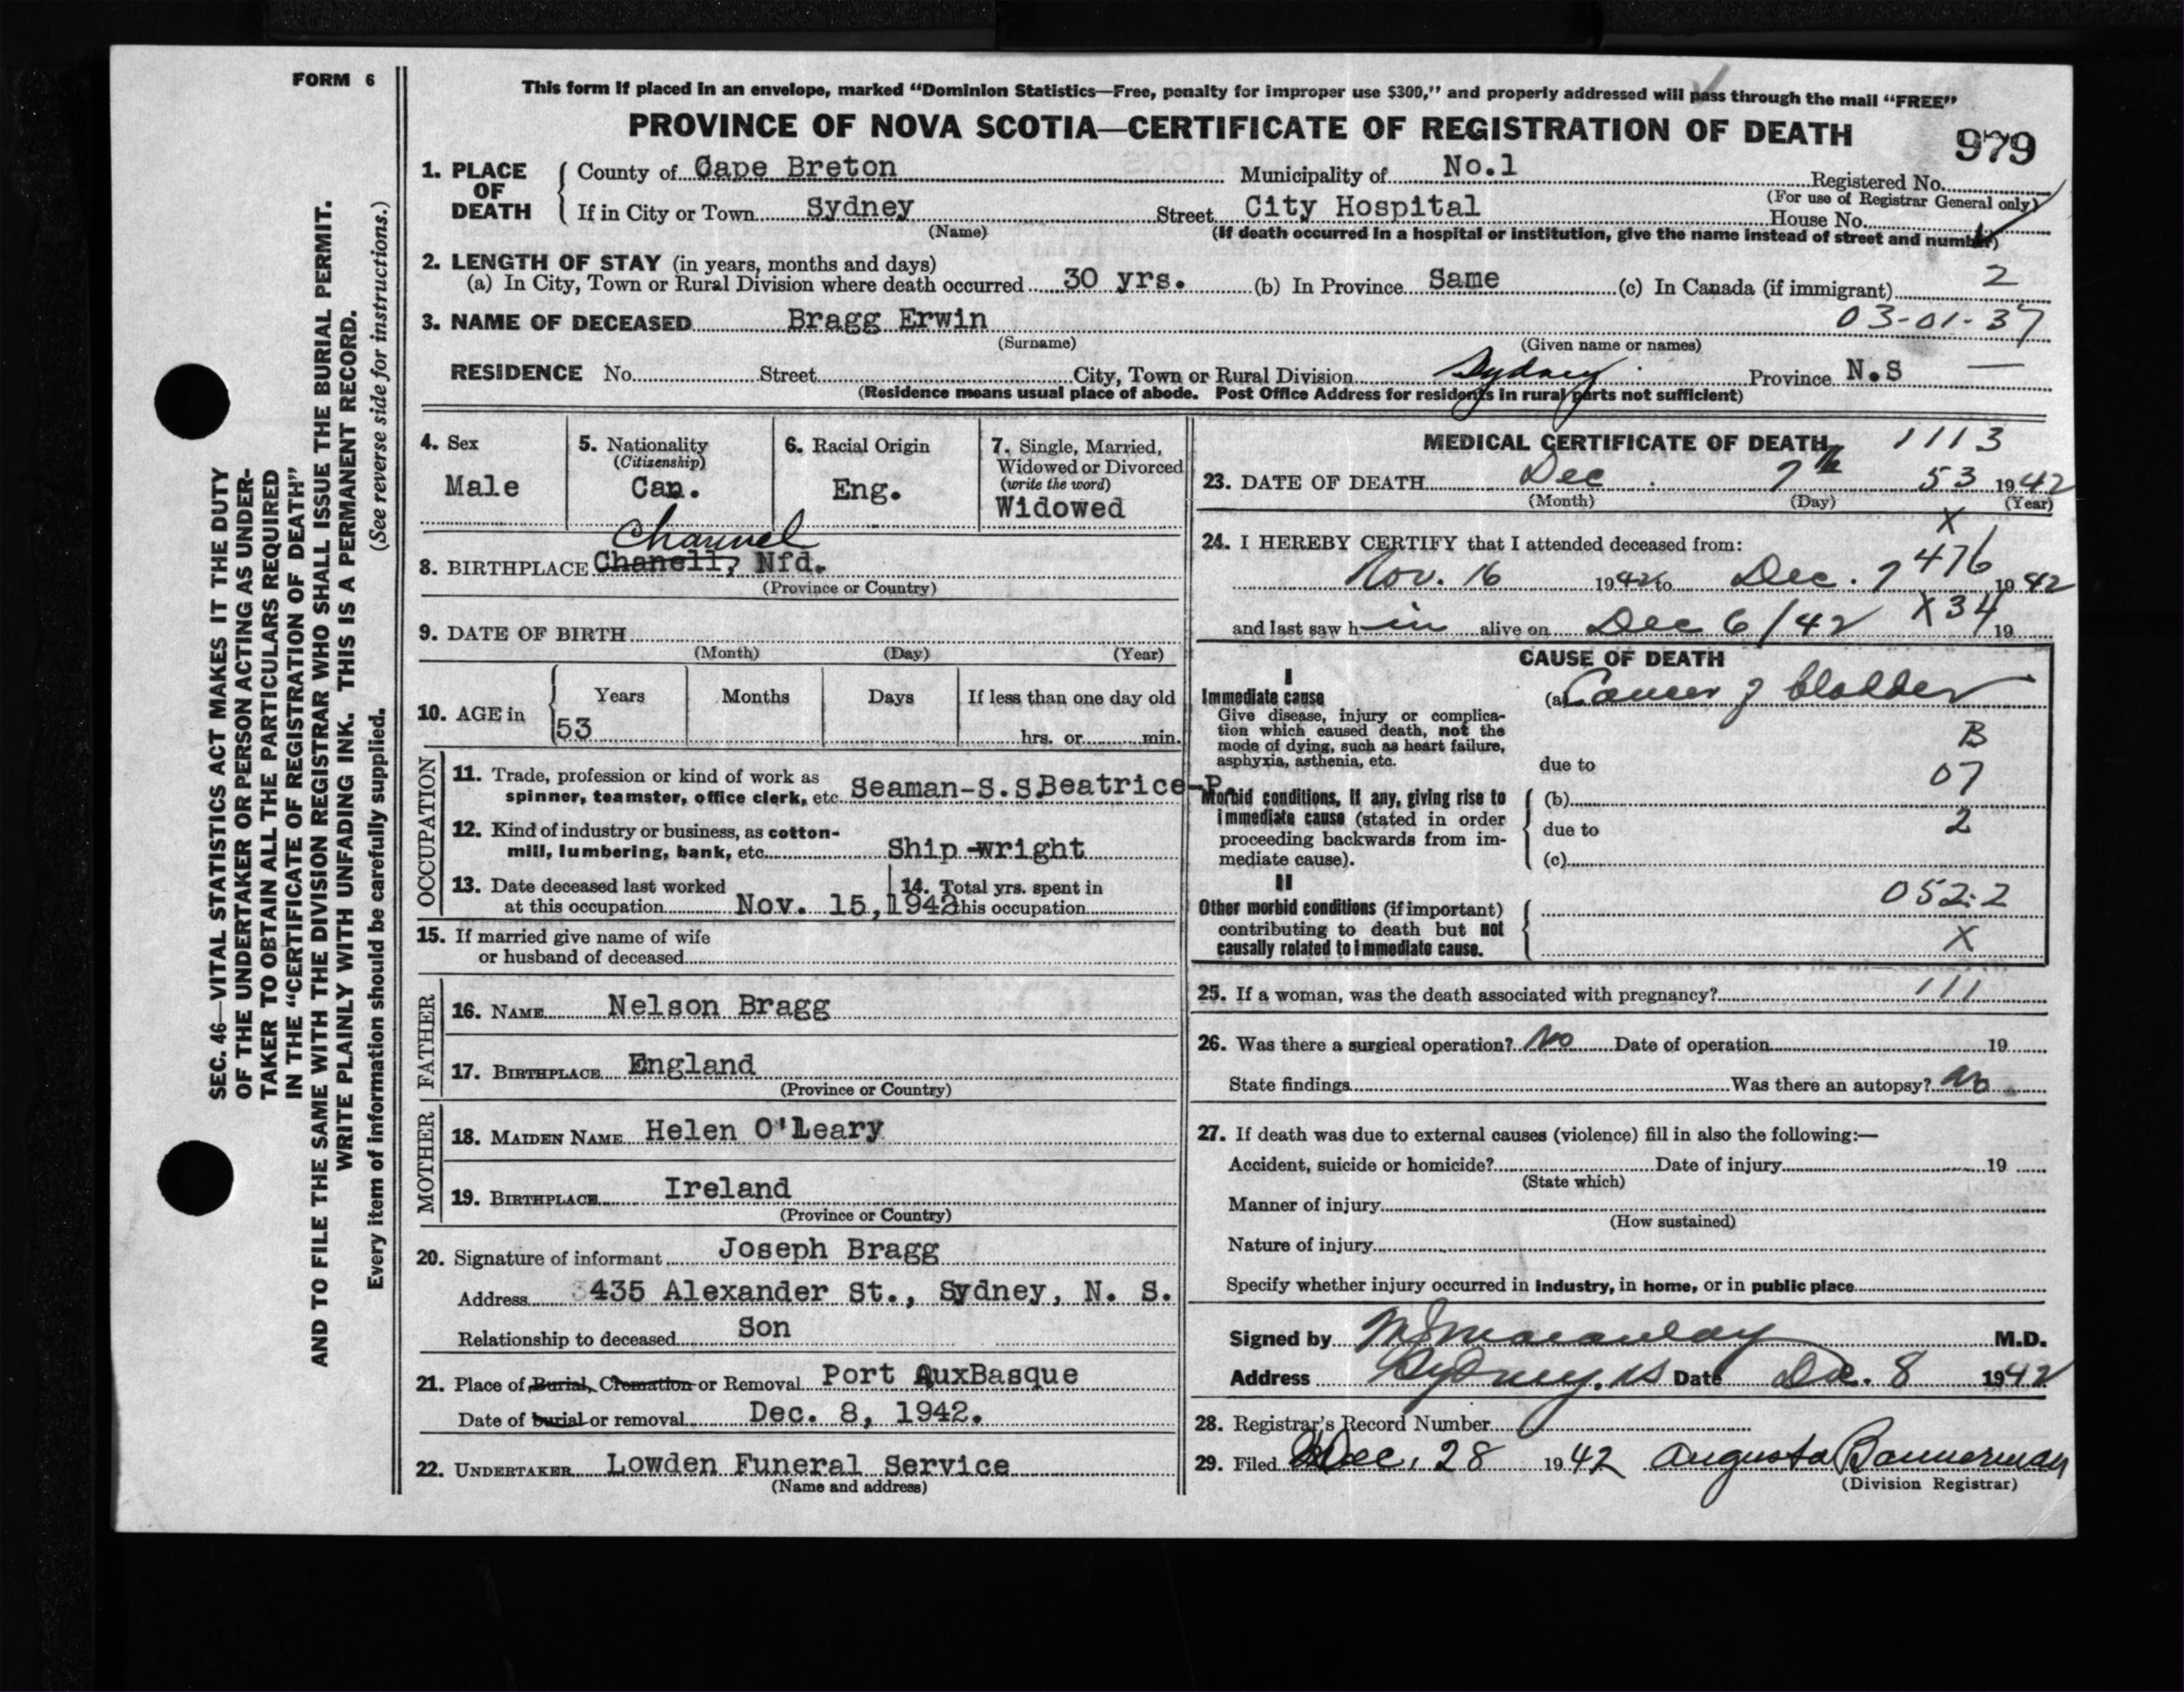 FORM 6
This form if placed in an envelope, marked “Dominion Statistics—Free, penalty for improper use $300,” and properly addressed will pass through the mail “FREE”
PROVINCE OF NOVA SCOTIA—CERTIFICATE OF REGISTRATION OF DEATH
979
1. PLACE OF DEATH
County of Cape Breton Municipality of No.1 Registered No.
(For use of Registrar General only)
If in City or Town Sydney Street City Hospital House No.
(Name) (If death occurred in a hospital or institution, give the name instead of street and number)
2. LENGTH OF STAY (in years, months and days)
(a) In City, Town or Rural Division where death occurred 30 yrs. (b) In Province Same (c) In Canada (if immigrant) 2
3. NAME OF DECEASED Bragg Erwin 03-01-37
(Surname) (Given name or names)
RESIDENCE No. Street City, Town or Rural Division Sydney Province N.S —
(Residence means usual place of abode. Post Office Address for residents in rural parts not sufficient)
4. Sex
Male
5. Nationality
(Citizenship)
Can.
6. Racial Origin
Eng.
7. Single, Married,
Widowed or Divorced
(write the word)
Widowed
Channel
8. BIRTHPLACE Chanell, Nfd.
(Province or Country)
9. DATE OF BIRTH
(Month) (Day) (Year)
10. AGE in
Years Months Days If less than one day old
53 hrs. or min.
OCCUPATION
11. Trade, profession or kind of work as
spinner, teamster, office clerk, etc. Seaman-S.S.Beatrice-P.
12. Kind of industry or business, as cotton-
mill, lumbering, bank, etc. Ship-wright
13. Date deceased last worked
at this occupation Nov. 15, 1942
14. Total yrs. spent in
this occupation
15. If married give name of wife
or husband of deceased
FATHER
16. NAME Nelson Bragg
17. BIRTHPLACE England
(Province or Country)
MOTHER
18. MAIDEN NAME Helen O'Leary
19. BIRTHPLACE Ireland
(Province or Country)
20. Signature of informant Joseph Bragg
Address 435 Alexander St., Sydney, N. S.
Relationship to deceased Son
21. Place of Burial, Cremation or Removal Port AuxBasque
Date of burial or removal Dec. 8, 1942.
22. UNDERTAKER Lowden Funeral Service
(Name and address)
MEDICAL CERTIFICATE OF DEATH 1113
23. DATE OF DEATH Dec. 7th 53 1942
(Month) (Day) (Year)
X
24. I HEREBY CERTIFY that I attended deceased from:
Nov. 16 1942 to Dec. 7 476 1942
and last saw h im alive on Dec 6/42 X34 19
CAUSE OF DEATH
I
Immediate cause
Give disease, injury or complica-
tion which caused death, not the
mode of dying, such as heart failure,
asphyxia, asthenia, etc.
(a) Cancer of bladder
B
due to
07
Morbid conditions, if any, giving rise to
immediate cause (stated in order
proceeding backwards from im-
mediate cause).
(b)
due to 2
(c)
II
Other morbid conditions (if important)
contributing to death but not
causally related to immediate cause.
052.2
X
25. If a woman, was the death associated with pregnancy? 111
26. Was there a surgical operation? No Date of operation 19
State findings Was there an autopsy? No
27. If death was due to external causes (violence) fill in also the following:—
Accident, suicide or homicide? Date of injury 19
(State which)
Manner of injury
(How sustained)
Nature of injury
Specify whether injury occurred in industry, in home, or in public place
Signed by Macaulay M.D.
Address Sydney, NS Date Dec. 8 1942
28. Registrar's Record Number
29. Filed Dec. 28 1942 Augusta Bannerman
(Division Registrar)
SEC. 46—VITAL STATISTICS ACT MAKES IT THE DUTY
OF THE UNDERTAKER OR PERSON ACTING AS UNDER-
TAKER TO OBTAIN ALL THE PARTICULARS REQUIRED
IN THE “CERTIFICATE OF REGISTRATION OF DEATH”
AND TO FILE THE SAME WITH THE DIVISION REGISTRAR WHO SHALL ISSUE THE BURIAL PERMIT.
WRITE PLAINLY WITH UNFADING INK. THIS IS A PERMANENT RECORD.
Every item of information should be carefully supplied. (See reverse side for instructions.)